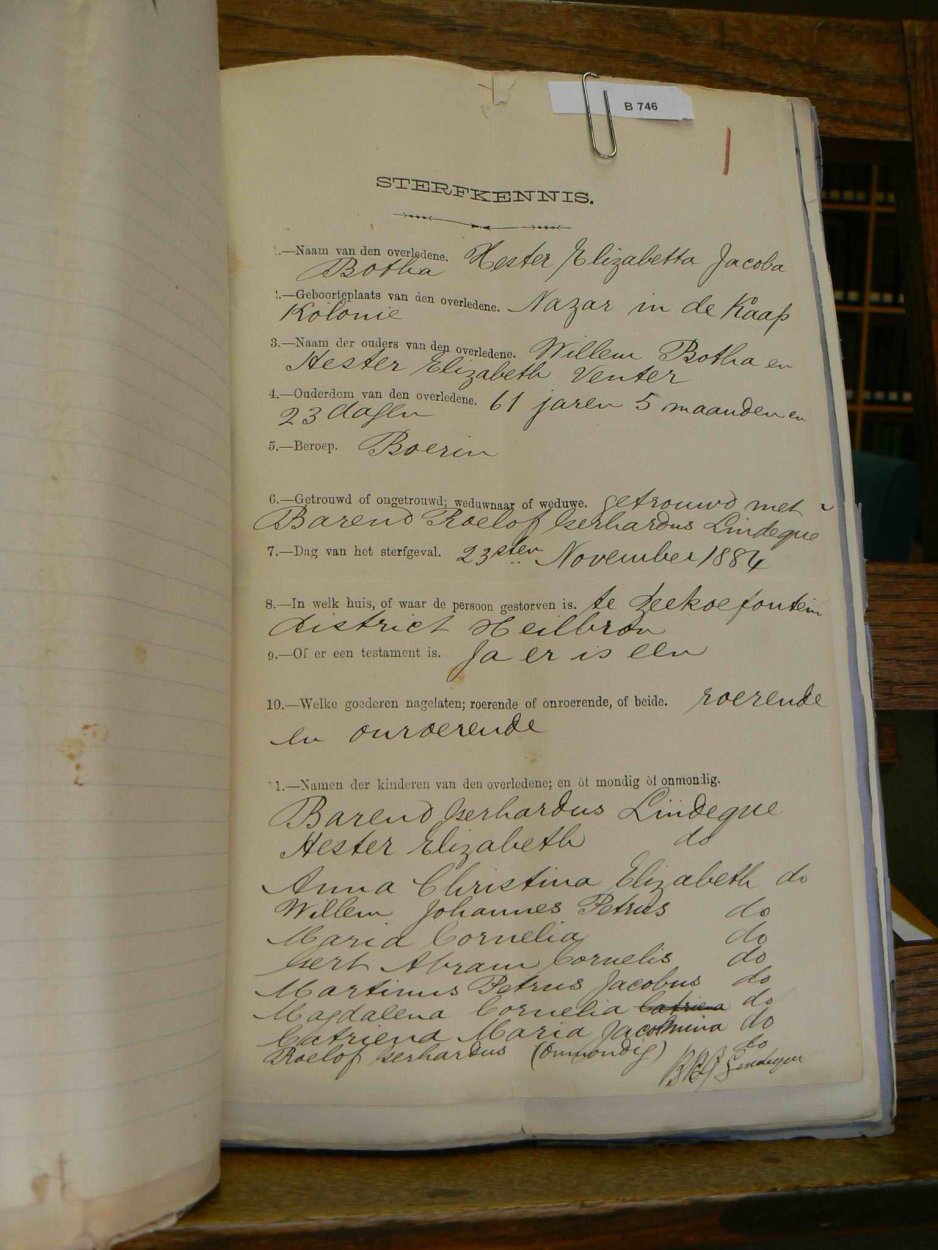 B 746
STERFKENNIS.
1.—Naam van den overledene. Hester Elizabetta Jacoba
Botha
2.—Geboorteplaats van den overledene. Nazar in de Kaap
Kolonie
3.—Naam der ouders van den overledene. Willem Botha en
Hester Elizabeth Venter
4.—Ouderdom van den overledene. 61 jaren 5 maanden en
23 dagen
5.—Beroep. Boerin
6.—Getrouwd of ongetrouwd; weduwnaar of weduwe. getrouwd met
Barend Roelof Gerhardus Lindeque
7.—Dag van het sterfgeval. 23sten November 1884
8.—In welk huis, of waar de persoon gestorven is. te Zeekoefontein
district Heilbron
9.—Of er een testament is. Ja er is een
10.—Welke goederen nagelaten; roerende of onroerende, of beide. roerende
en onroerende
11.—Namen der kinderen van den overledene; en òf mondig òf onmondig.
Barend Gerhardus Lindeque
Hester Elizabeth do
Anna Christina Elizabeth do
Willem Johannes Petrus do
Maria Cornelia do
Gert Abram Cornelis do
Martinus Petrus Jacobus do
Magdalena Cornelia Catriena do
Catriena Maria Jacomina do
Roelof Gerhardus (Onmondig) do